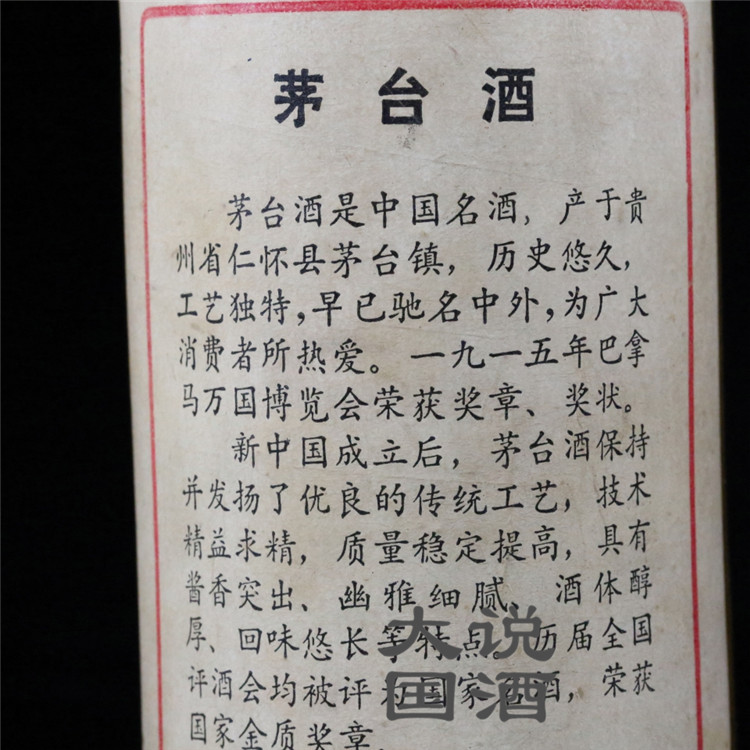 茅台酒
茅台酒是中国名酒，产于贵
州省仁怀县茅台镇，历史悠久，
工艺独特，早已驰名中外，为广大
消费者所热爱。一九一五年巴拿
马万国博览会荣获奖章、奖状。
新中国成立后，茅台酒保持
并发扬了优良的传统工艺，技术
精益求精，质量稳定提高，具有
酱香突出、幽雅细腻、酒体醇
厚、回味悠长等特点。历届全国
评酒会均被评为国家名酒，荣获
国家金质奖章.
大说
国酒